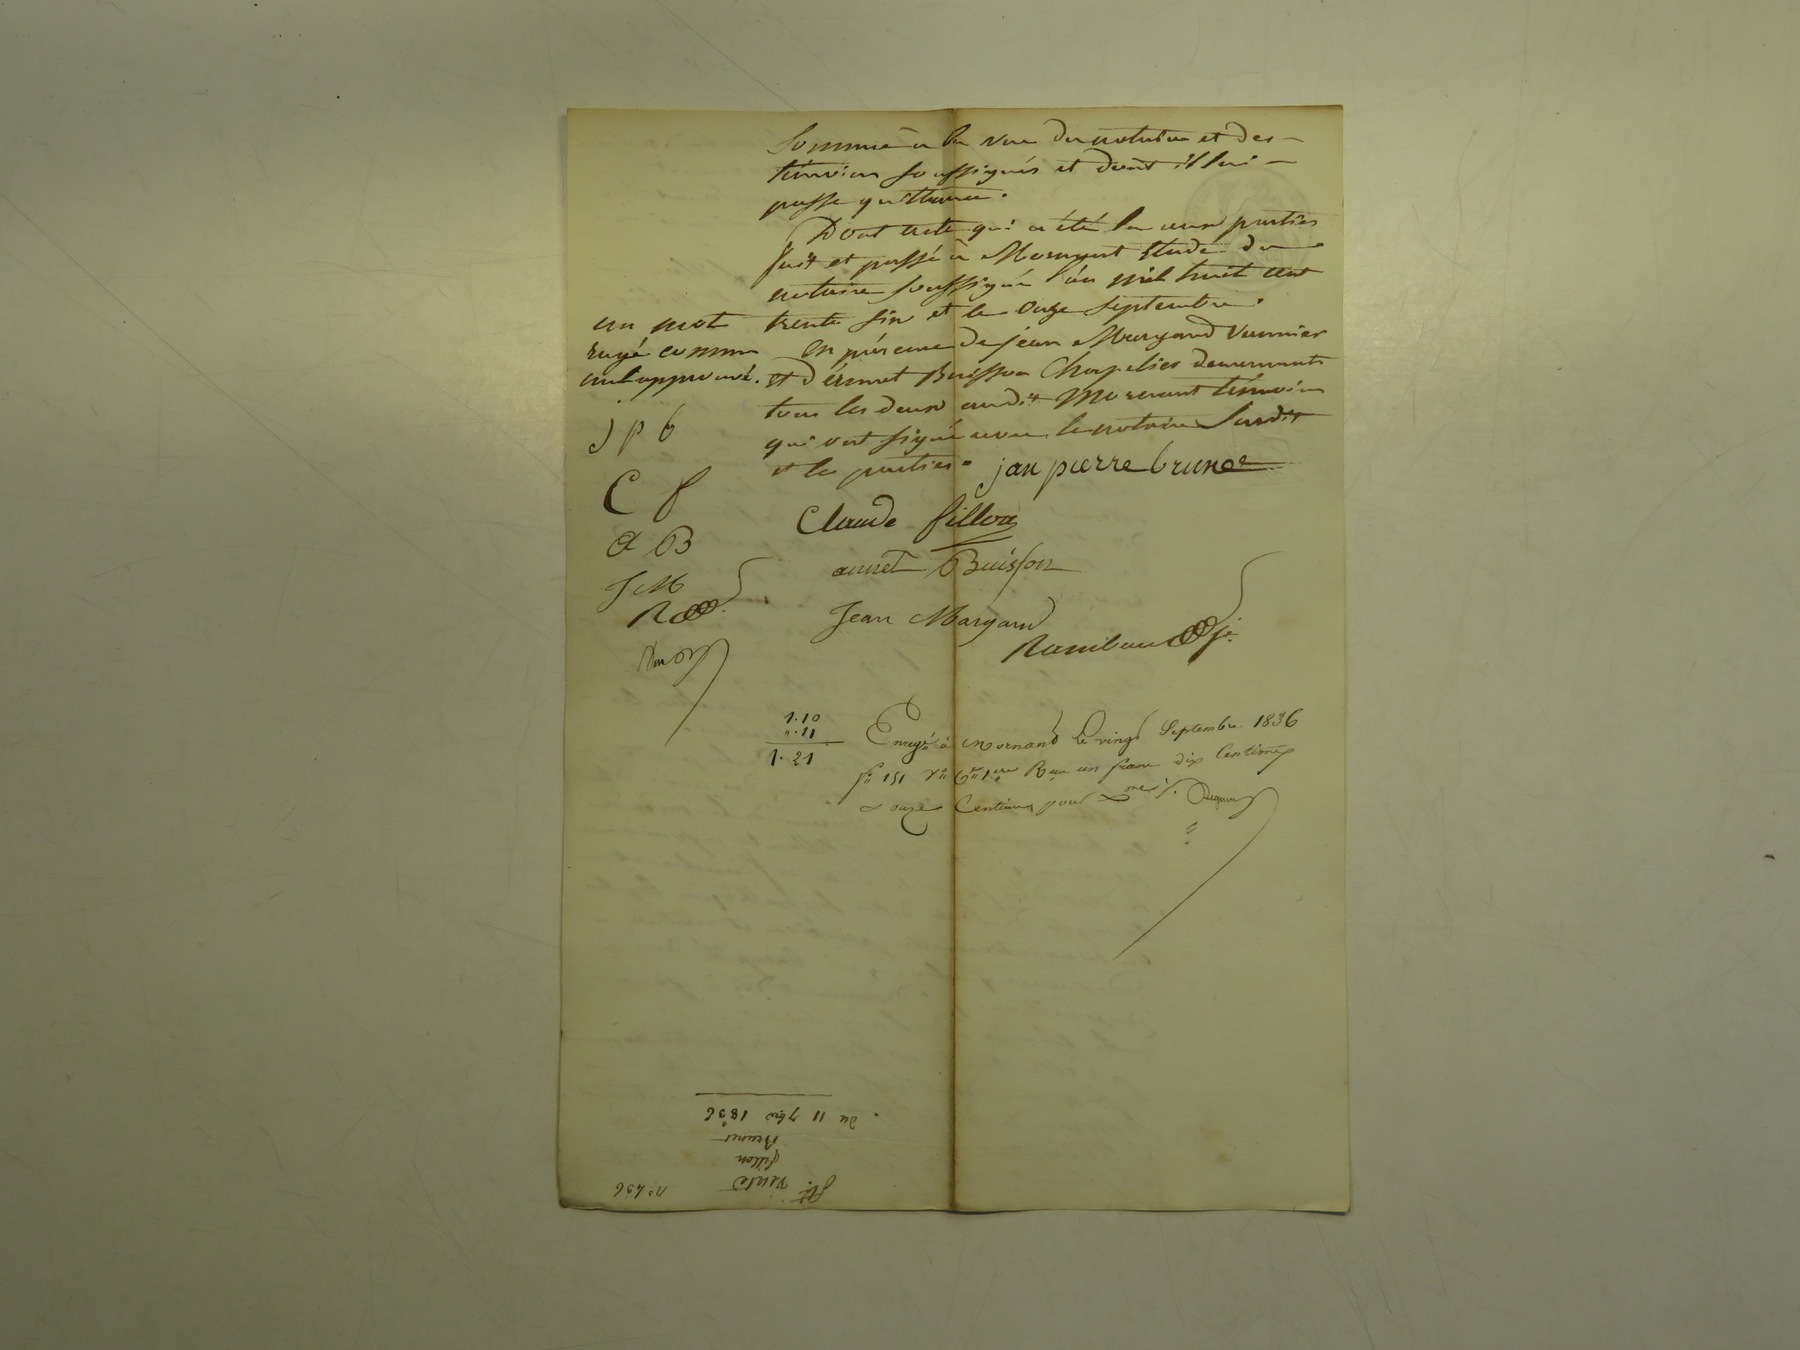 Somme à la vue du notaire et des
témoins soussignés et dont il lui
passe quittance.
Dont acte qui a été lu aux parties
fait et passé à Mornant étude du
notaire soussigné l'an mil huit cent
trente six et le onze septembre.
En présence de jean Margand Vannier
et d'énnet Buisson Chapelier demeurants
tous les deux audit Mornant témoins
qui ont signé avec le notaire Susdit
et les parties.
un mot
rayé comme
nul approuvé.
j p b
C f
a B
J M
R
jan pierre brunet
Claude fillon
annet Buisson
Jean Margand
Rambaud je
1.10
".11
1.21
Enregé à Mornant le vingt Septembre 1836
fo 151 Vo Reçu un franc dix Centimes
& onze Centimes pour
du 11 7bre 1836
Brunet
fillon
Vente
No 436